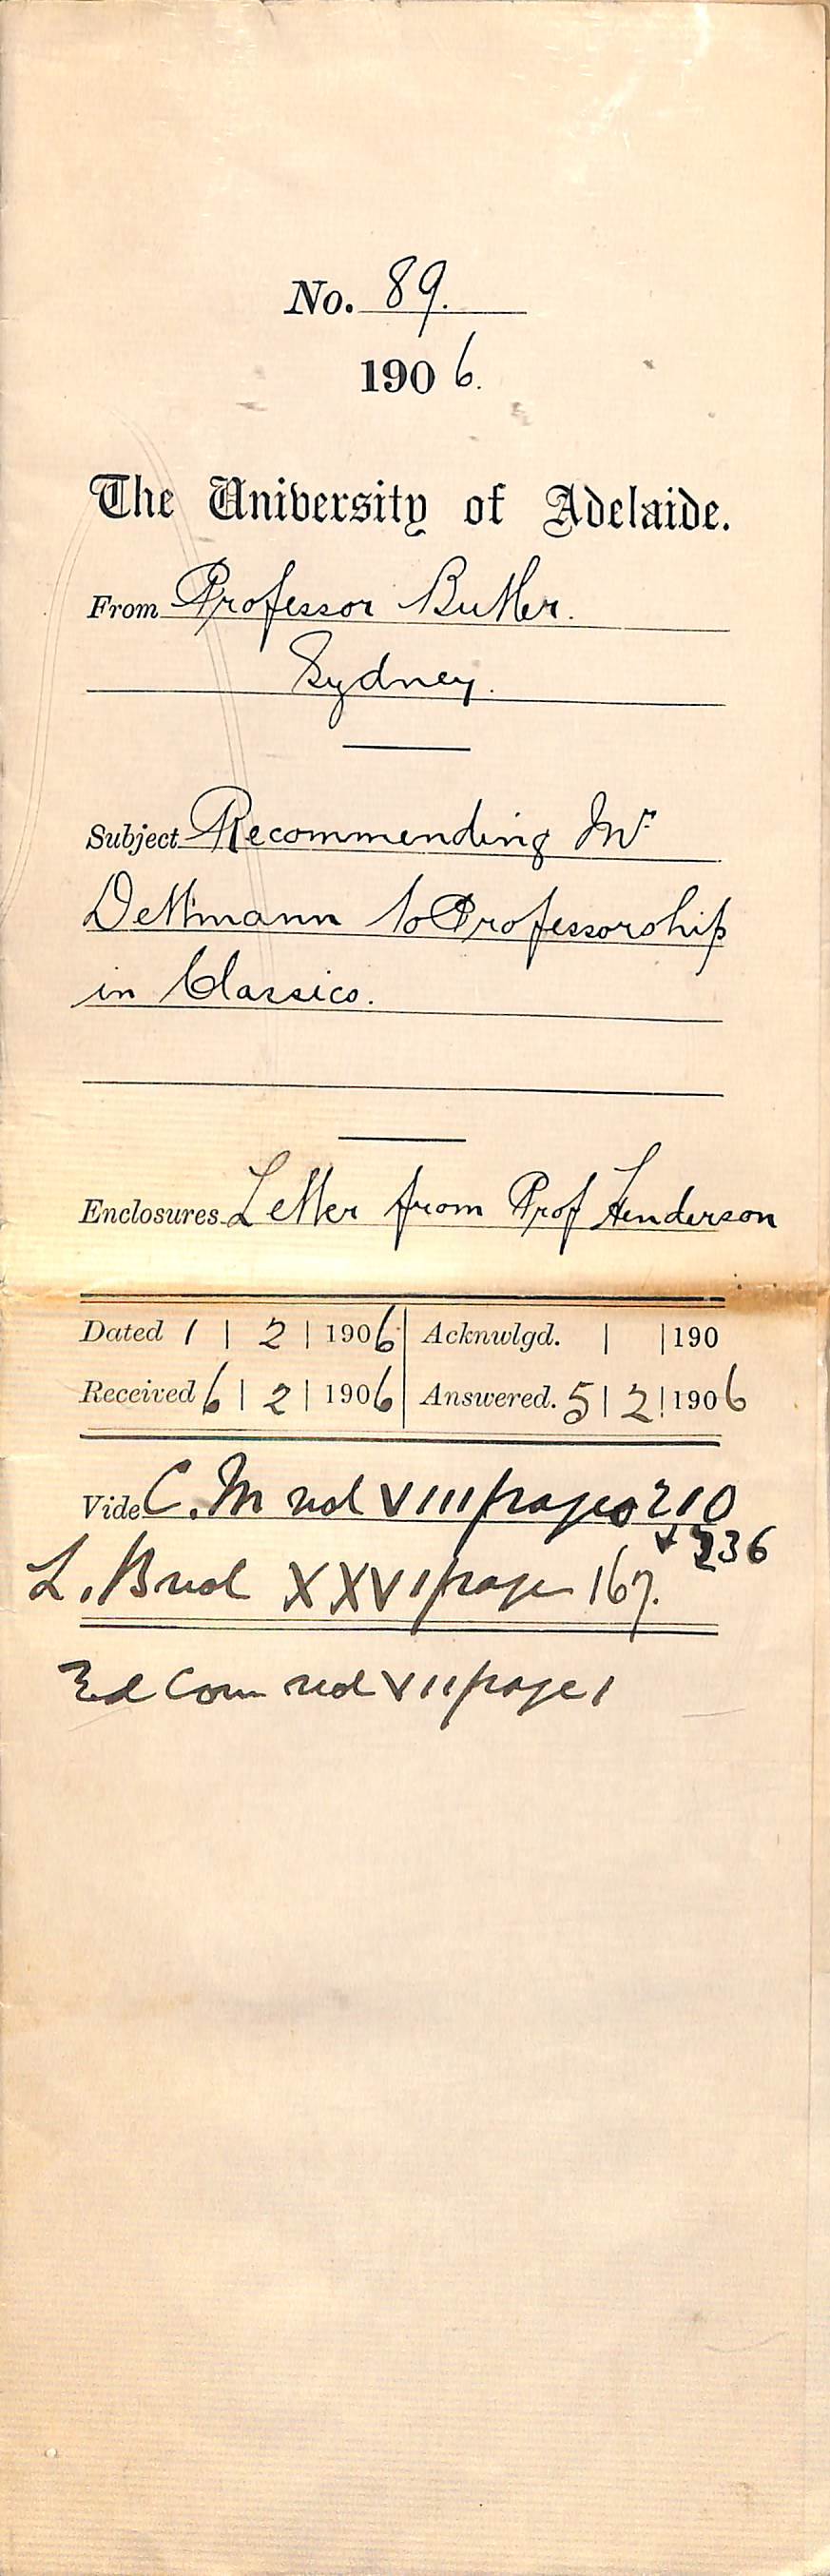 No. 89.
1906.
The University of Adelaide.
From Professor Butler.
Sydney.
Subject Recommending Mr
Dettmann to Professorship
in Classics.
Enclosures Letter from Prof Henderson
Dated 1 | 2 | 1906 Acknwlgd. | | 190
Received 6 | 2 | 1906 Answered. 5 | 2 | 1906
Vide C. M vol VIII pages 210
+ 236
L. B vol XXVI page 167.
Ed Com vol VII page 1